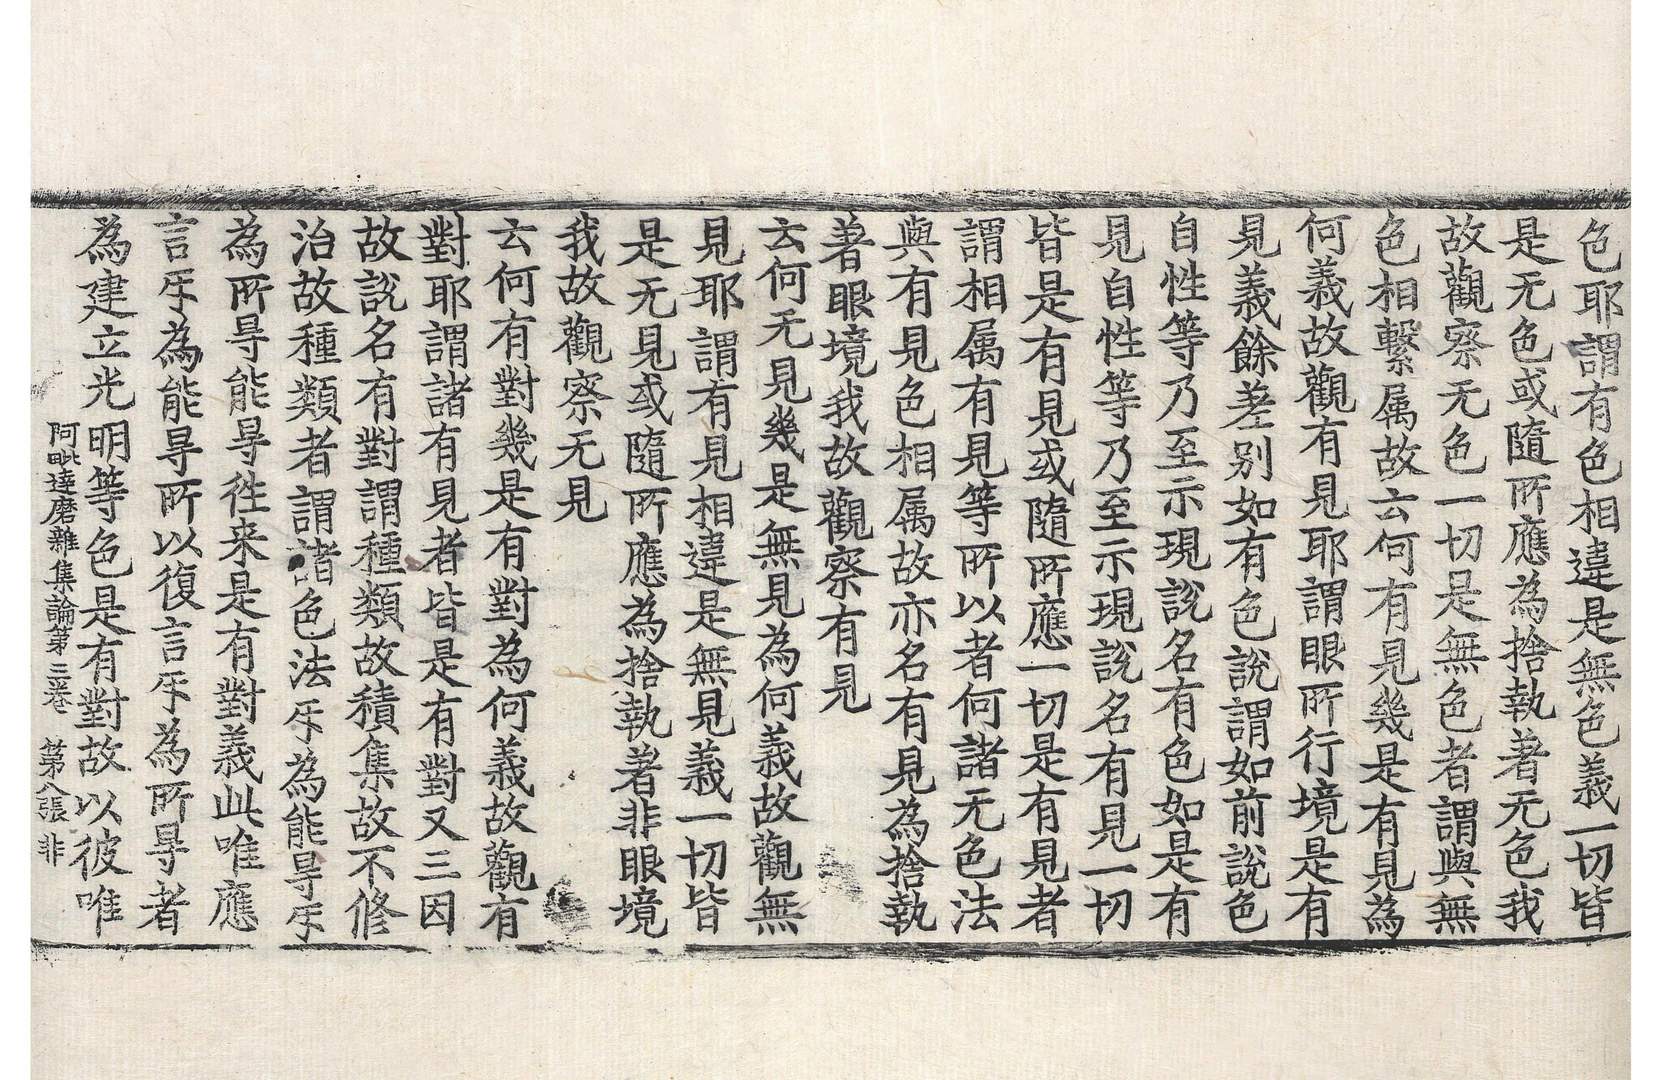 色耶謂有色相違是無色義一切皆
是无色或隨所應為捨執著无色我
故觀察无色一切是無色者謂與無
色相繫属故云何有見幾是有見為
何義故觀有見耶謂眼所行境是有
見義餘差別如有色說謂如前說色
自性等乃至示現說名有色如是有
見自性等乃至示現說名有見一切
皆是有見或隨所應一切是有見者
謂相属有見等所以者何諸无色法
與有見色相属故亦名有見為捨執
著眼境我故觀察有見
云何无見幾是無見為何義故觀無
見耶謂有見相違是無見義一切皆
是无見或隨所應為捨執著非眼境
我故觀察无見
云何有對幾是有對為何義故觀有
對耶謂諸有見者皆是有對又三因
故說名有對謂種類故積集故不修
治故種類者謂諸色法㸦為能㝵㸦
為所㝵能㝵徃来是有對義此唯應
言㸦為能㝵所以復言㸦為所㝵者
為建立光明等色是有對故以彼唯
阿毗達磨雜集論第三卷 第八張 非